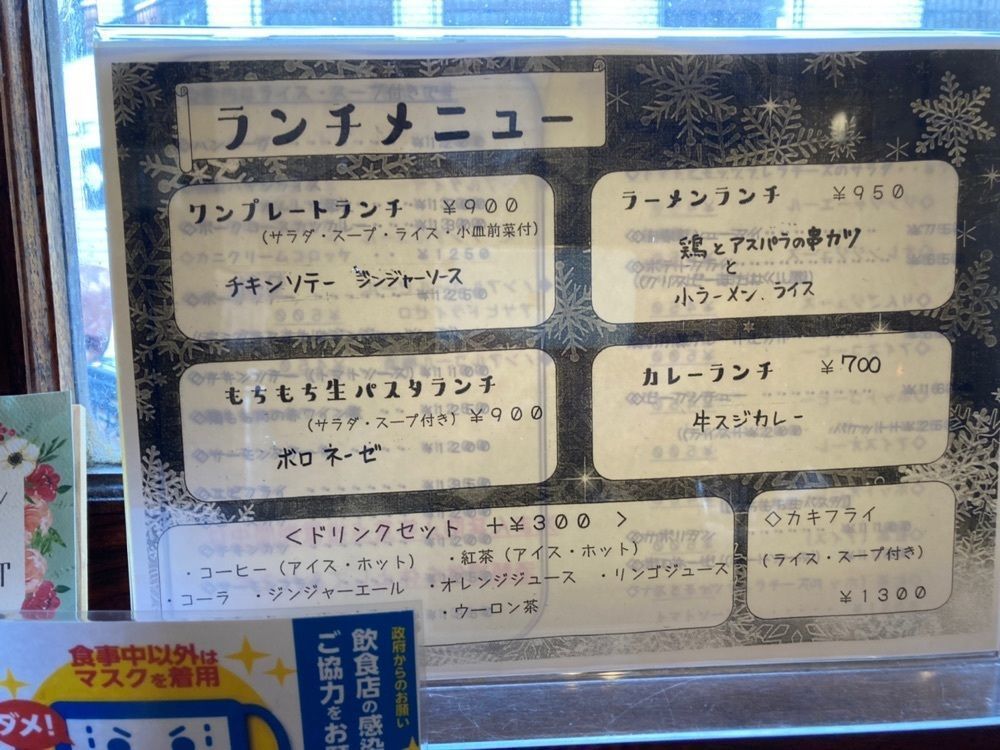 ランチメニュー
ワンプレートランチ ￥900
(サラダ・スープ・ライス・小皿前菜付)
チキンソテー ジンジャーソース
ラーメンランチ ￥950
鶏とアスパラの串カツ
と
小ラーメン、ライス
もちもち生パスタランチ
(サラダ・スープ付き) ￥900
ボロネーゼ
カレーランチ ￥700
牛スジカレー
<ドリンクセット +￥300 >
・コーヒー(アイス・ホット) ・紅茶(アイス・ホット)
・コーラ ・ジンジャーエール ・オレンジジュース ・リンゴジュース
・ウーロン茶
◇カキフライ
(ライス・スープ付き)
￥1300
食事中以外は
マスクを着用
ダメ!
政府からのお願い
飲食店の感染
ご協力をお願